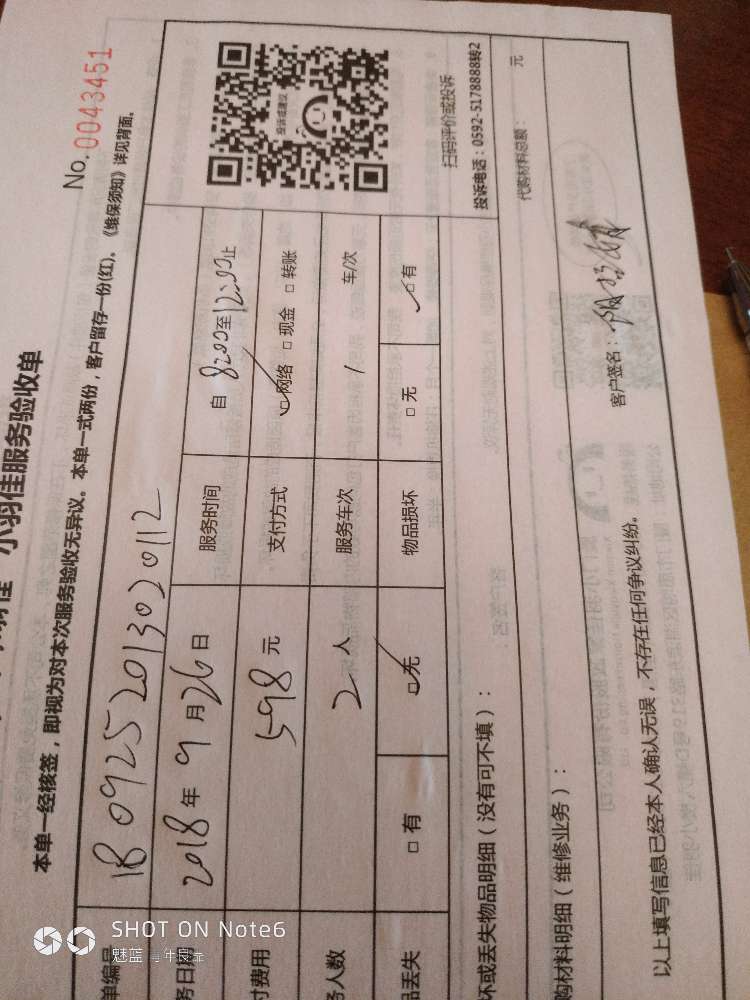 小羽佳服务验收单
No. 0043451
本单一经核签，即视为对本次服务验收无异议。本单一式两份，客户留存一份(红)。《维保须知》详见背面。
单编号 1809252013020112
务日期 2018年9月26日 服务时间 自8:00至12:00止
付费用 598元 支付方式 ☑网络 □现金 □转账
务人数 2人 服务车次 1 车/次
品丢失 □有 ☑无 物品损坏 □无 ☑有
投诉或建议
扫码评价或投诉
投诉电话：0592-5178888转2
坏或丢失物品明细（没有可不填）：
购材料明细（维修业务）： 代购材料总额： 元
以上填写信息已经本人确认无误，不存在任何争议纠纷。 客户签名：
SHOT ON Note6
魅蓝